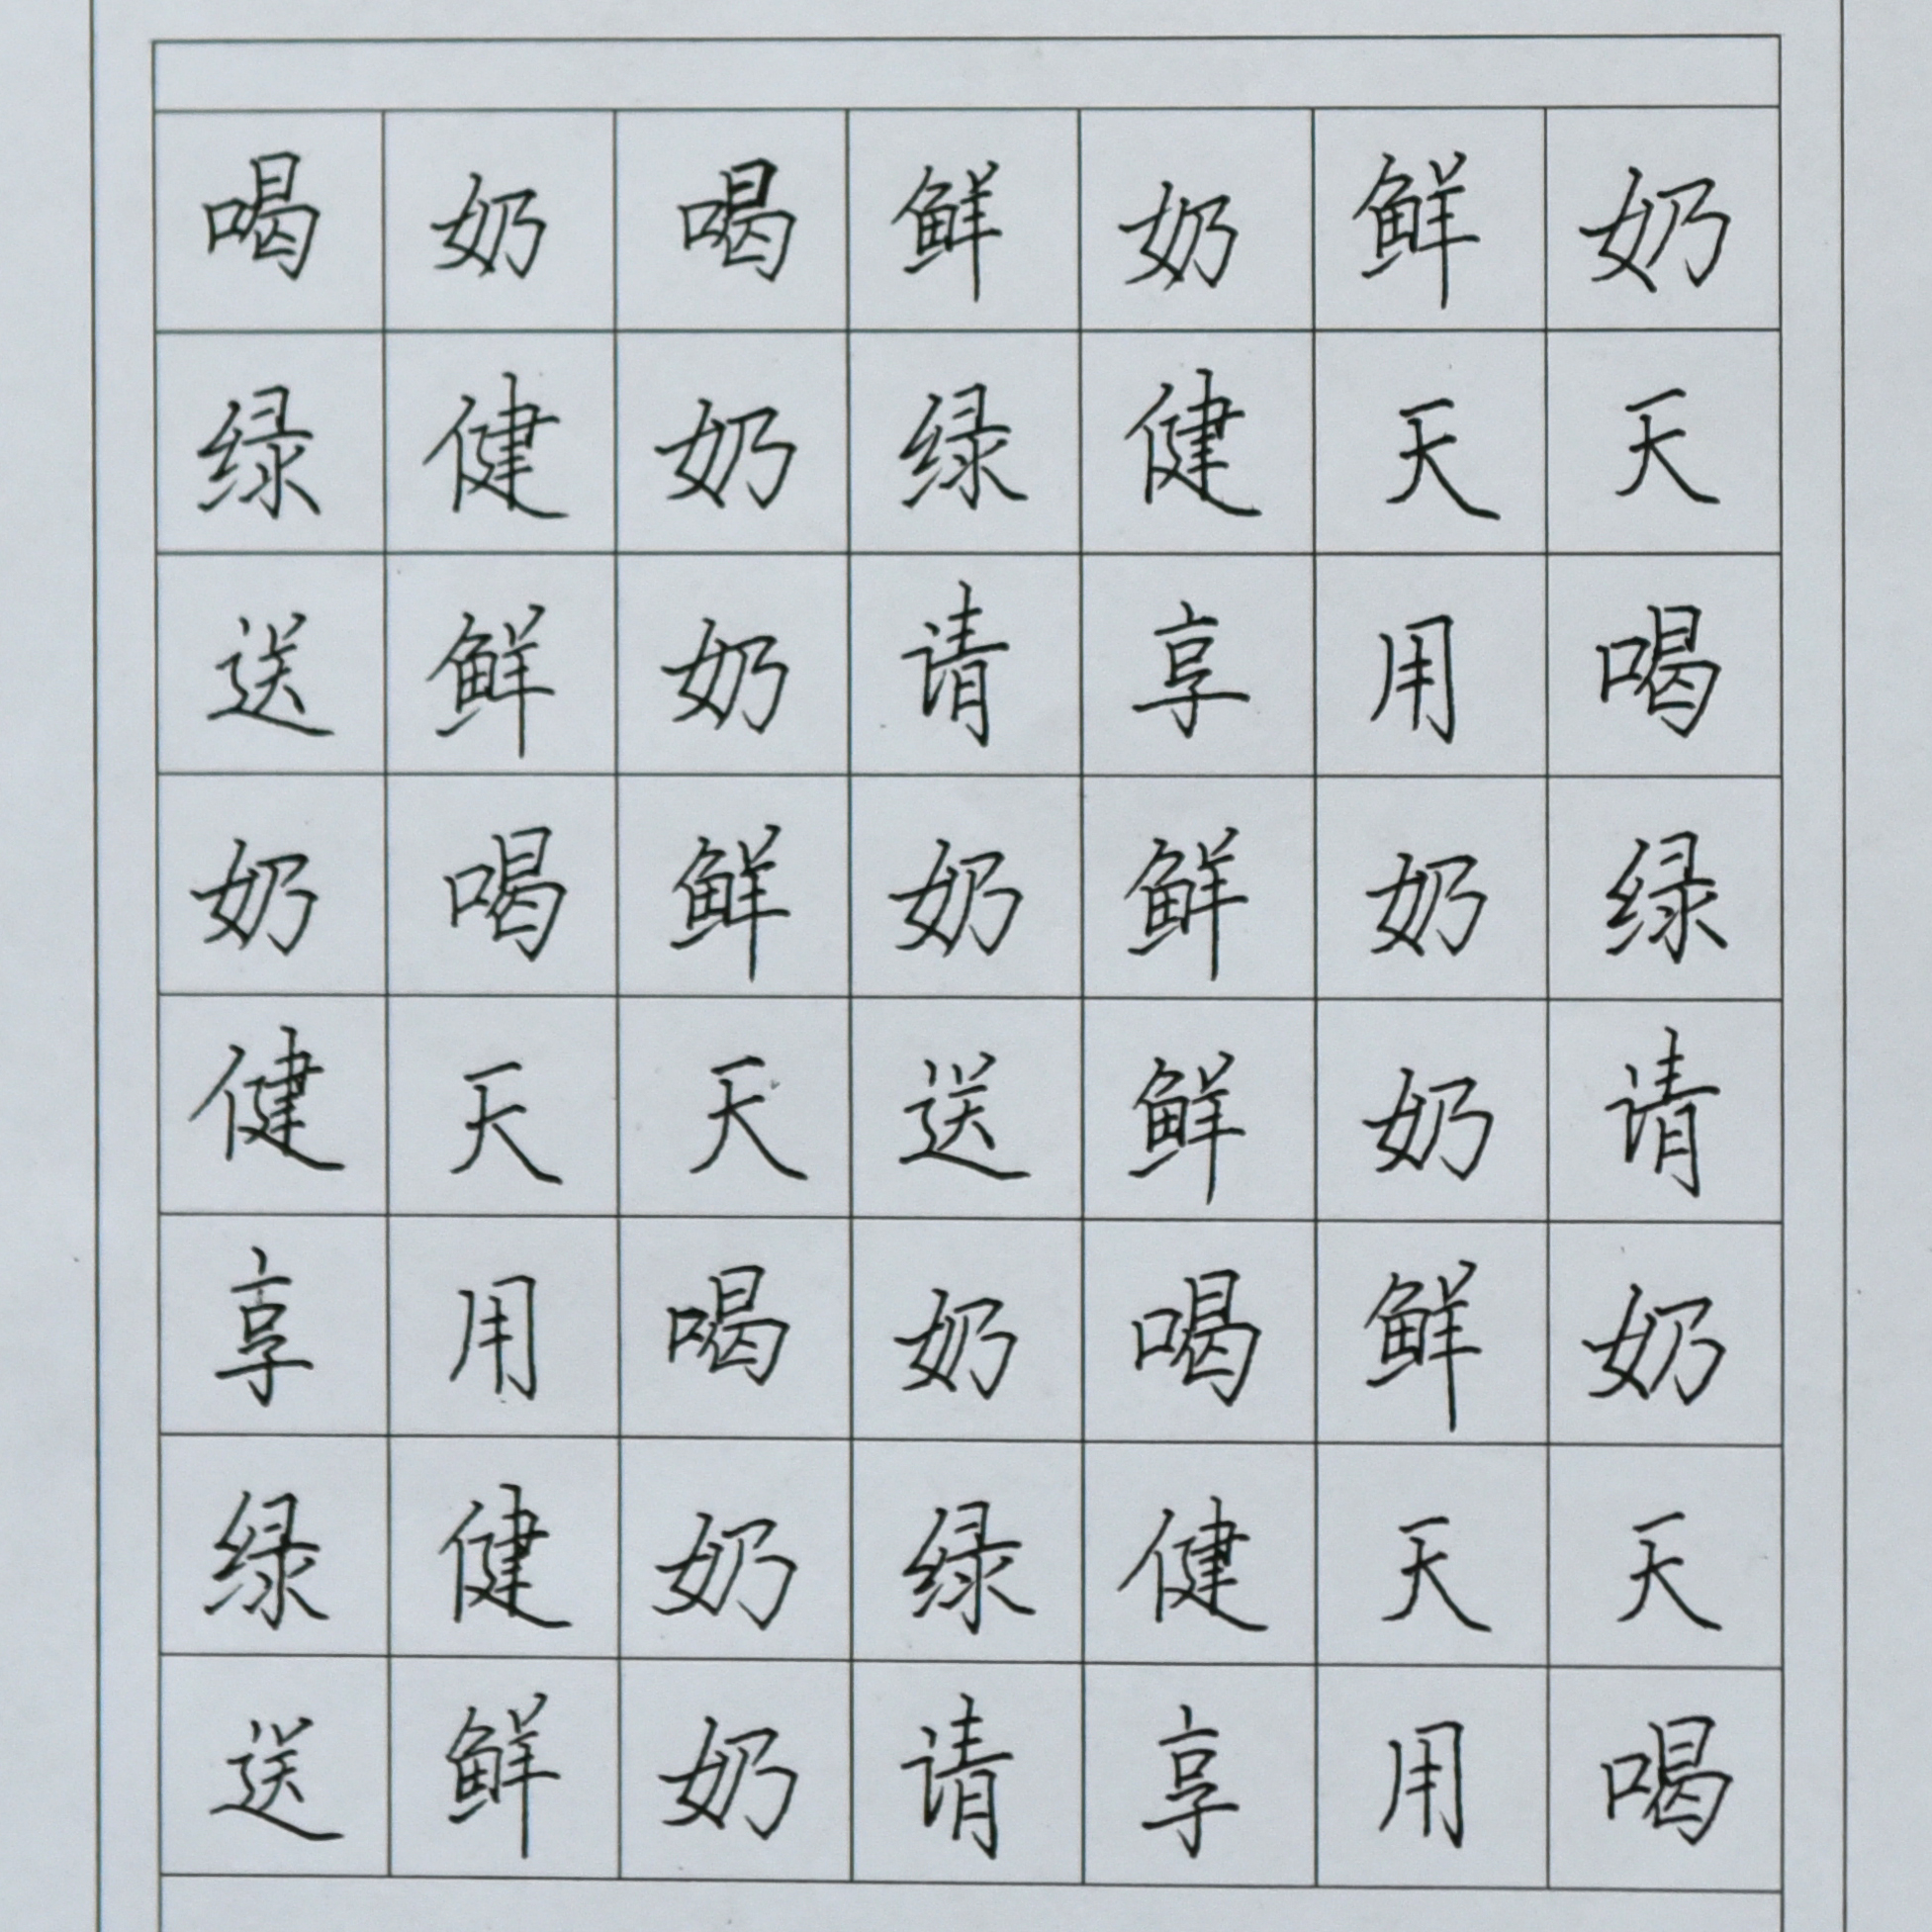 喝奶喝鲜奶鲜奶
绿健奶绿健天天
送鲜奶请享用喝
奶喝鲜奶鲜奶绿
健天天送鲜奶请
享用喝奶喝鲜奶
绿健奶绿健天天
送鲜奶请享用喝